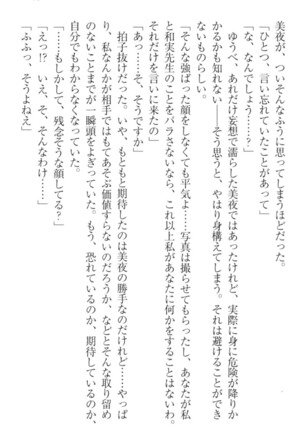 美夜が、ついそんなふうに思ってしまうほどだった。
「ひとつ、言い忘れていたことがあって」
「な、なんでしょう……？」
ゆうべ、あれだけ妄想で濡らした美夜ではあったけれど、実際に身に危険が降りか
かるかも知れない――そう思うと、やはり身構えてしまう。それは避けることができ
ないものらしい。
「そんな強ばった顔をしなくても平気よ……写真は撮らせてもらったし、あなたが私
と和実先生のことをバラさないなら、これ以上私があなたに何かをすることはないわ。
それだけを言いに来たの」
「あっ……そ、そうですか」
拍子抜けだった。いや、もともと期待したのは美夜の勝手なのだけれど……やっぱ
り、私なんかが相手ではもてあそぶ価値すらないのだろうか、などとそんな取り留め
のないことまでが一瞬頭をよぎっていた。もう、恐れているのか、期待しているのか、
自分でもわからなくなっていた。
「……もしかして、残念そうな顔してる？」
「えっ!?　いえ、そ、そんなわけ……」
「ふふっ、そうよねえ」